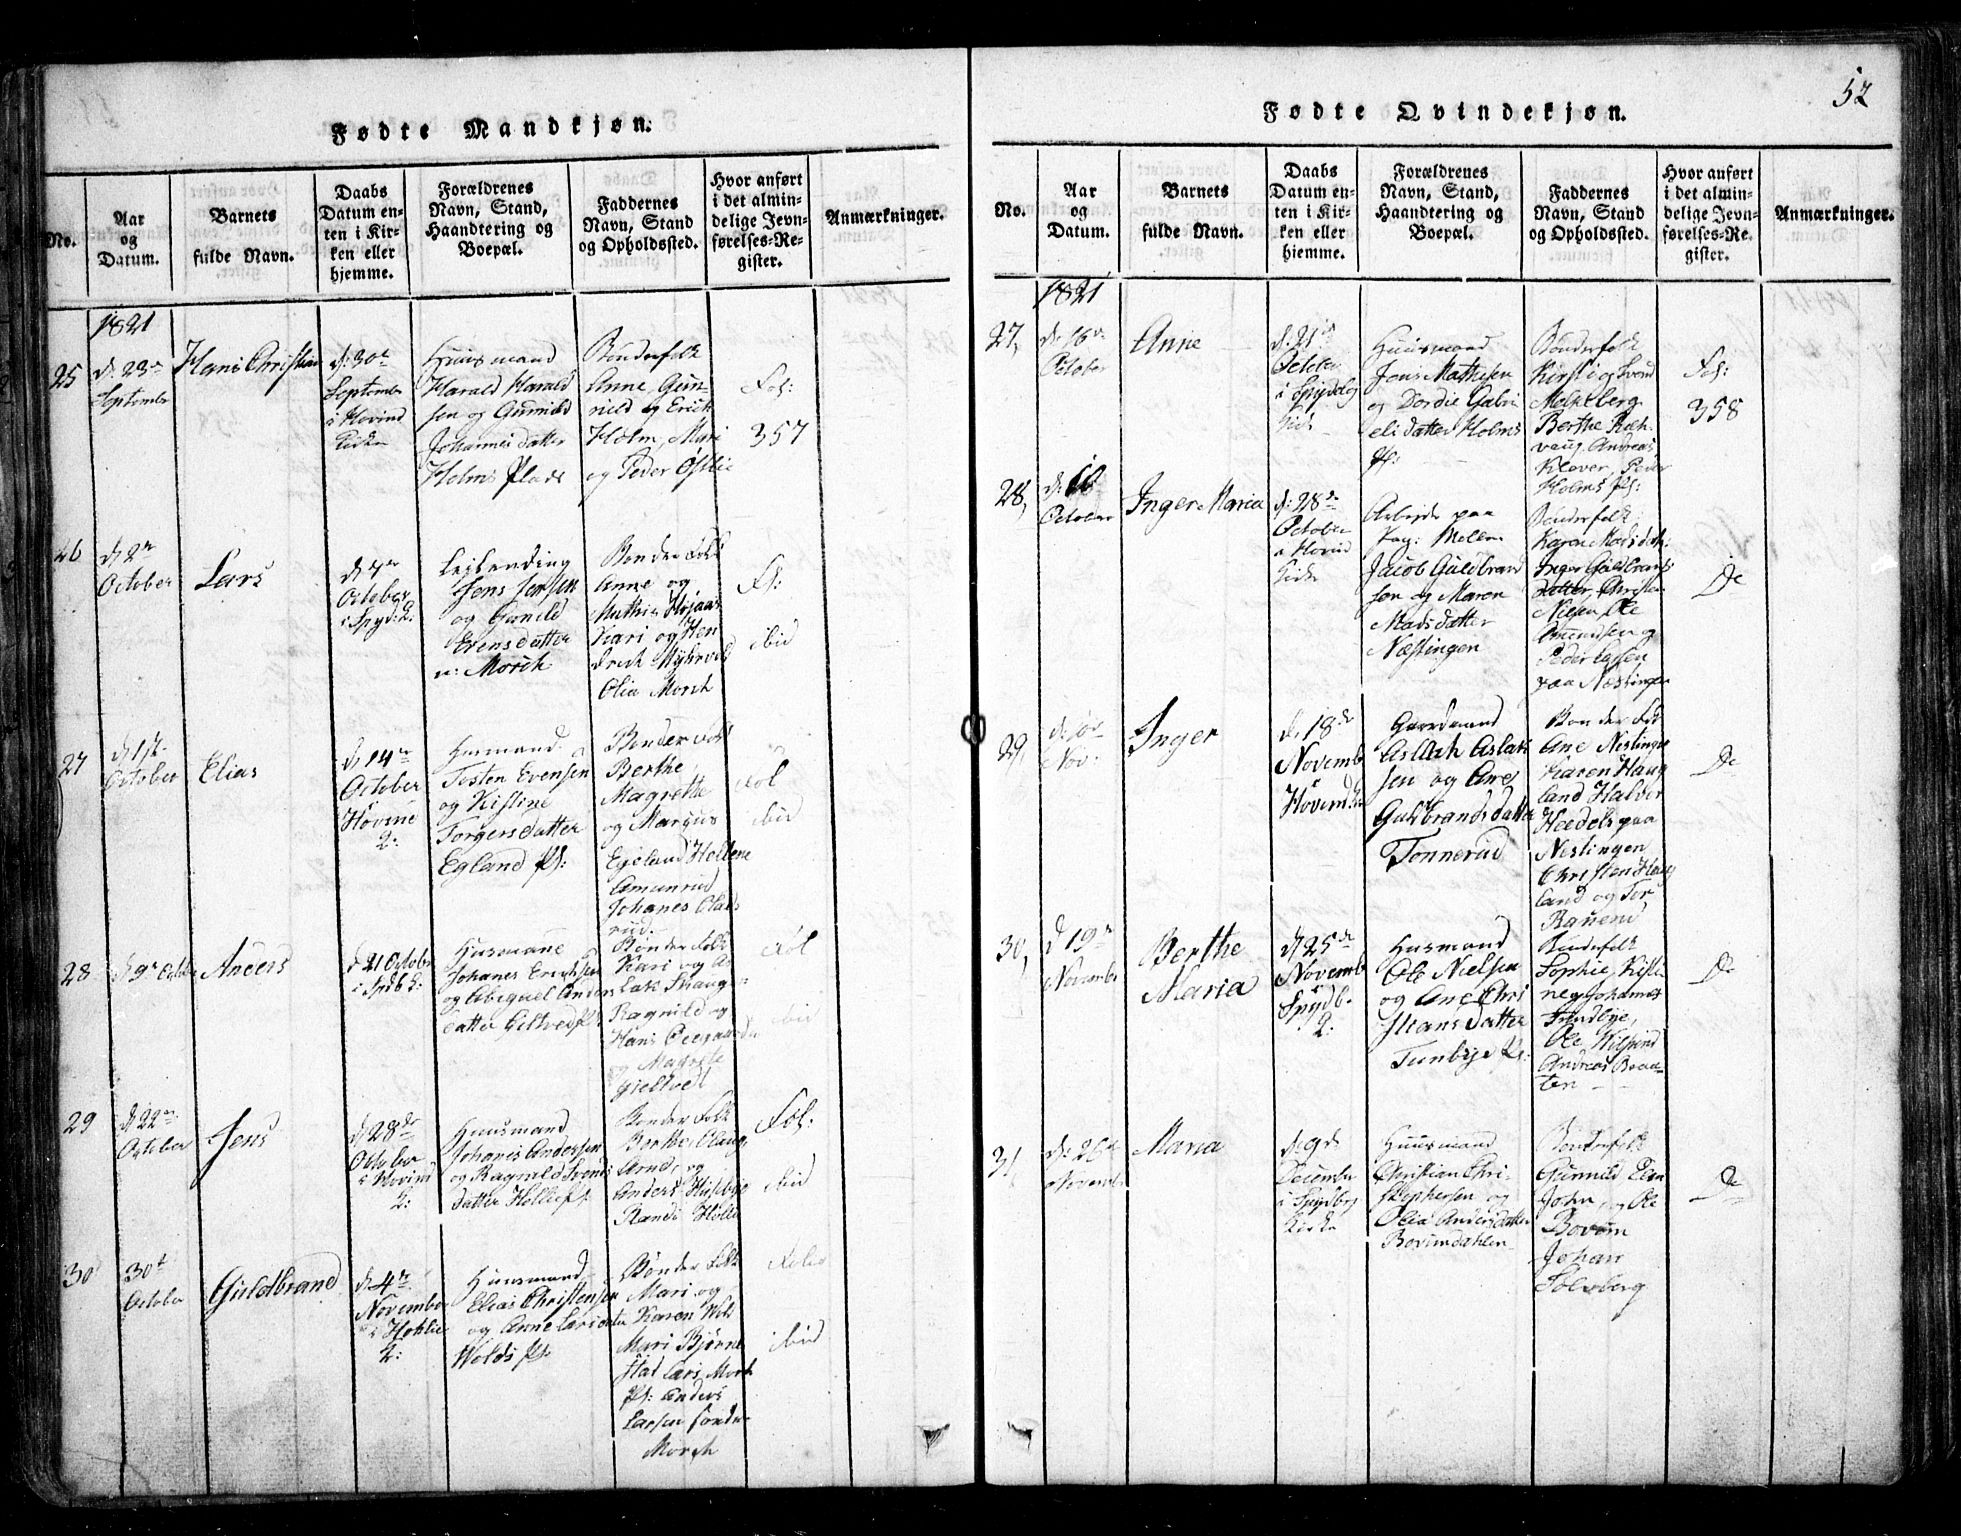 52
Fødte Mandkjøn.
No.
Aar
og
Datum.
Barnets
fulde Navn.
Daabs
Datum en-
ten i Kir-
ken eller
hjemme.
Forældrenes
Navn, Stand,
Haandtering og
Boepæl.
Faddernes
Navn, Stand
og Opholdssted.
Hvor anført
i det almin-
delige Jevn-
førelses-Re-
gister.
Anmærkninger.
1821
25
d: 23de
Septembr
Hans Christian
d: 30te
Septembr
i Hovind
Kirke
Huusmand
Harald Harald
sen og Gunild
Johannesdatter
Holms Plads
Bønderfolk
Anne, Gun-
nild og Erich
Holm, Mari
og Peder Østlie
Fol:
357
26
d 2n
October
Lars
d 7de
October
i Spyd: K:
Leilending
Jens Jensen
og Gunild
Evensdatter
n: Morch
Bønder Folk
Anne og
Mathis
Kari og Hen
drich Myhrvold
Olia Morch
F:
ibid
27
d 1st
October
Elias
d 14de
October
Hovind
K:
Husmand
Tosten Evensen
og Kistine
Torgersdatter
Egland Pl:
Bønder Folk
Berthe
Magrethe
og Marcus
Egeland Hellene
Amunrud
Johanes Olads
rud
Fol
ibid
28
d 9de October
Anders
d 21 October
i Spdb K:
Husmand
Johanes Erichsen
og Abeguel Anders
datter Gjltved Pl:
Bønder Folk
Kari og As
lak Skaug
Ragnild og
Hans
og Magrete
Gieltved
Fol
ibid
29
d 22de
October
Jens
d 28de
October
i Hovind
K:
Huusmand
Johanes Andersen
og Ragnild Svends
datter Hollie Pl:
Bønder Folk
Berthe, Olaug
Arne, og
Anders Huseby
Randi Hollie
Fol:
ibid
30
30t
October
Guldbrand
d 4de
November
i Hohlie
K:
Huusmand
Elias Christensen
og Anne Larsdatter
Wolds Pl:
Bønder Folk
Mari og
Karen Wold
Mari Bjørne
stad Lars Morch
Pl: Anders
Larsen Søndre
Morch
Folio
ibid
Fødte Qvindekjøn.
No.
Aar
og
Datum.
Barnets
fulde Navn.
Daabs
Datum en-
ten i Kir-
ken eller
hjemme.
Forældrenes
Navn, Stand,
Haandtering og
Boepæl.
Faddernes
Navn, Stand
og Opholdssted.
Hvor anført
i det almin-
delige Jevn-
førelses-Re-
gister.
Anmærkninger.
1821
27,
d: 16de
October
Anne
d: 21de
October
i Spydeberg
Kirke
Huusmand
Jens Mathisen
og Dordie Gabri
elsdatter Holms
Pl:
Bønderfolk
Kirsti og Svend
Mokeberg
Berthe
Andreas
Klever, Peder
Holms Pl:
Fol:
358
28,
d: 10
October
Inger Maria
d: 28de
October
i Hovind
Kirke
Arbeyde paa
Jacob Guldbrand
sen og Maren
Madsdatter
Næstingen
Bønderfolk
Karen Madsdatt:
Inger Guldbrands
datter, Christen
Nielsen, Ole
Amundsen og
Peder Larsen
paa Næstingen
Do
29,
Nov:
Inger
d. 18de
Novemb
i
Hovind K:
Gaardmand
Asllak Aslak
sen og Ane
Gulbrandsdatter
Tonnerud
Bonder Folk
Ane Nestingen
Karen Haug
land Halvor
paa
Nestingen
Christen Haug
land og Tor
Do
30,
d 19de
Novembr
Berthe
Maria
d 25de
Novemb
i
Spydb.
K:
Husmand
Ole Nielsen
og Ane Chri
stiansdatter
Tunbye Pl:
Bønderfolk
Sophie, Kisti
ne, Johannes
Tundbye,
Ole
Andreas Braa-
ten
Do
31,
d: 26de
Novembr
Maria
d: 9de
Decembr
i Spydberg
Kirke
Huusmand
Christian Chri-
stophersen og
Olia Andersdatter
Bovimdahlen
Bønderfolk
Gunnild
John, og Ole
Bovim
Johan
Solberg
Do